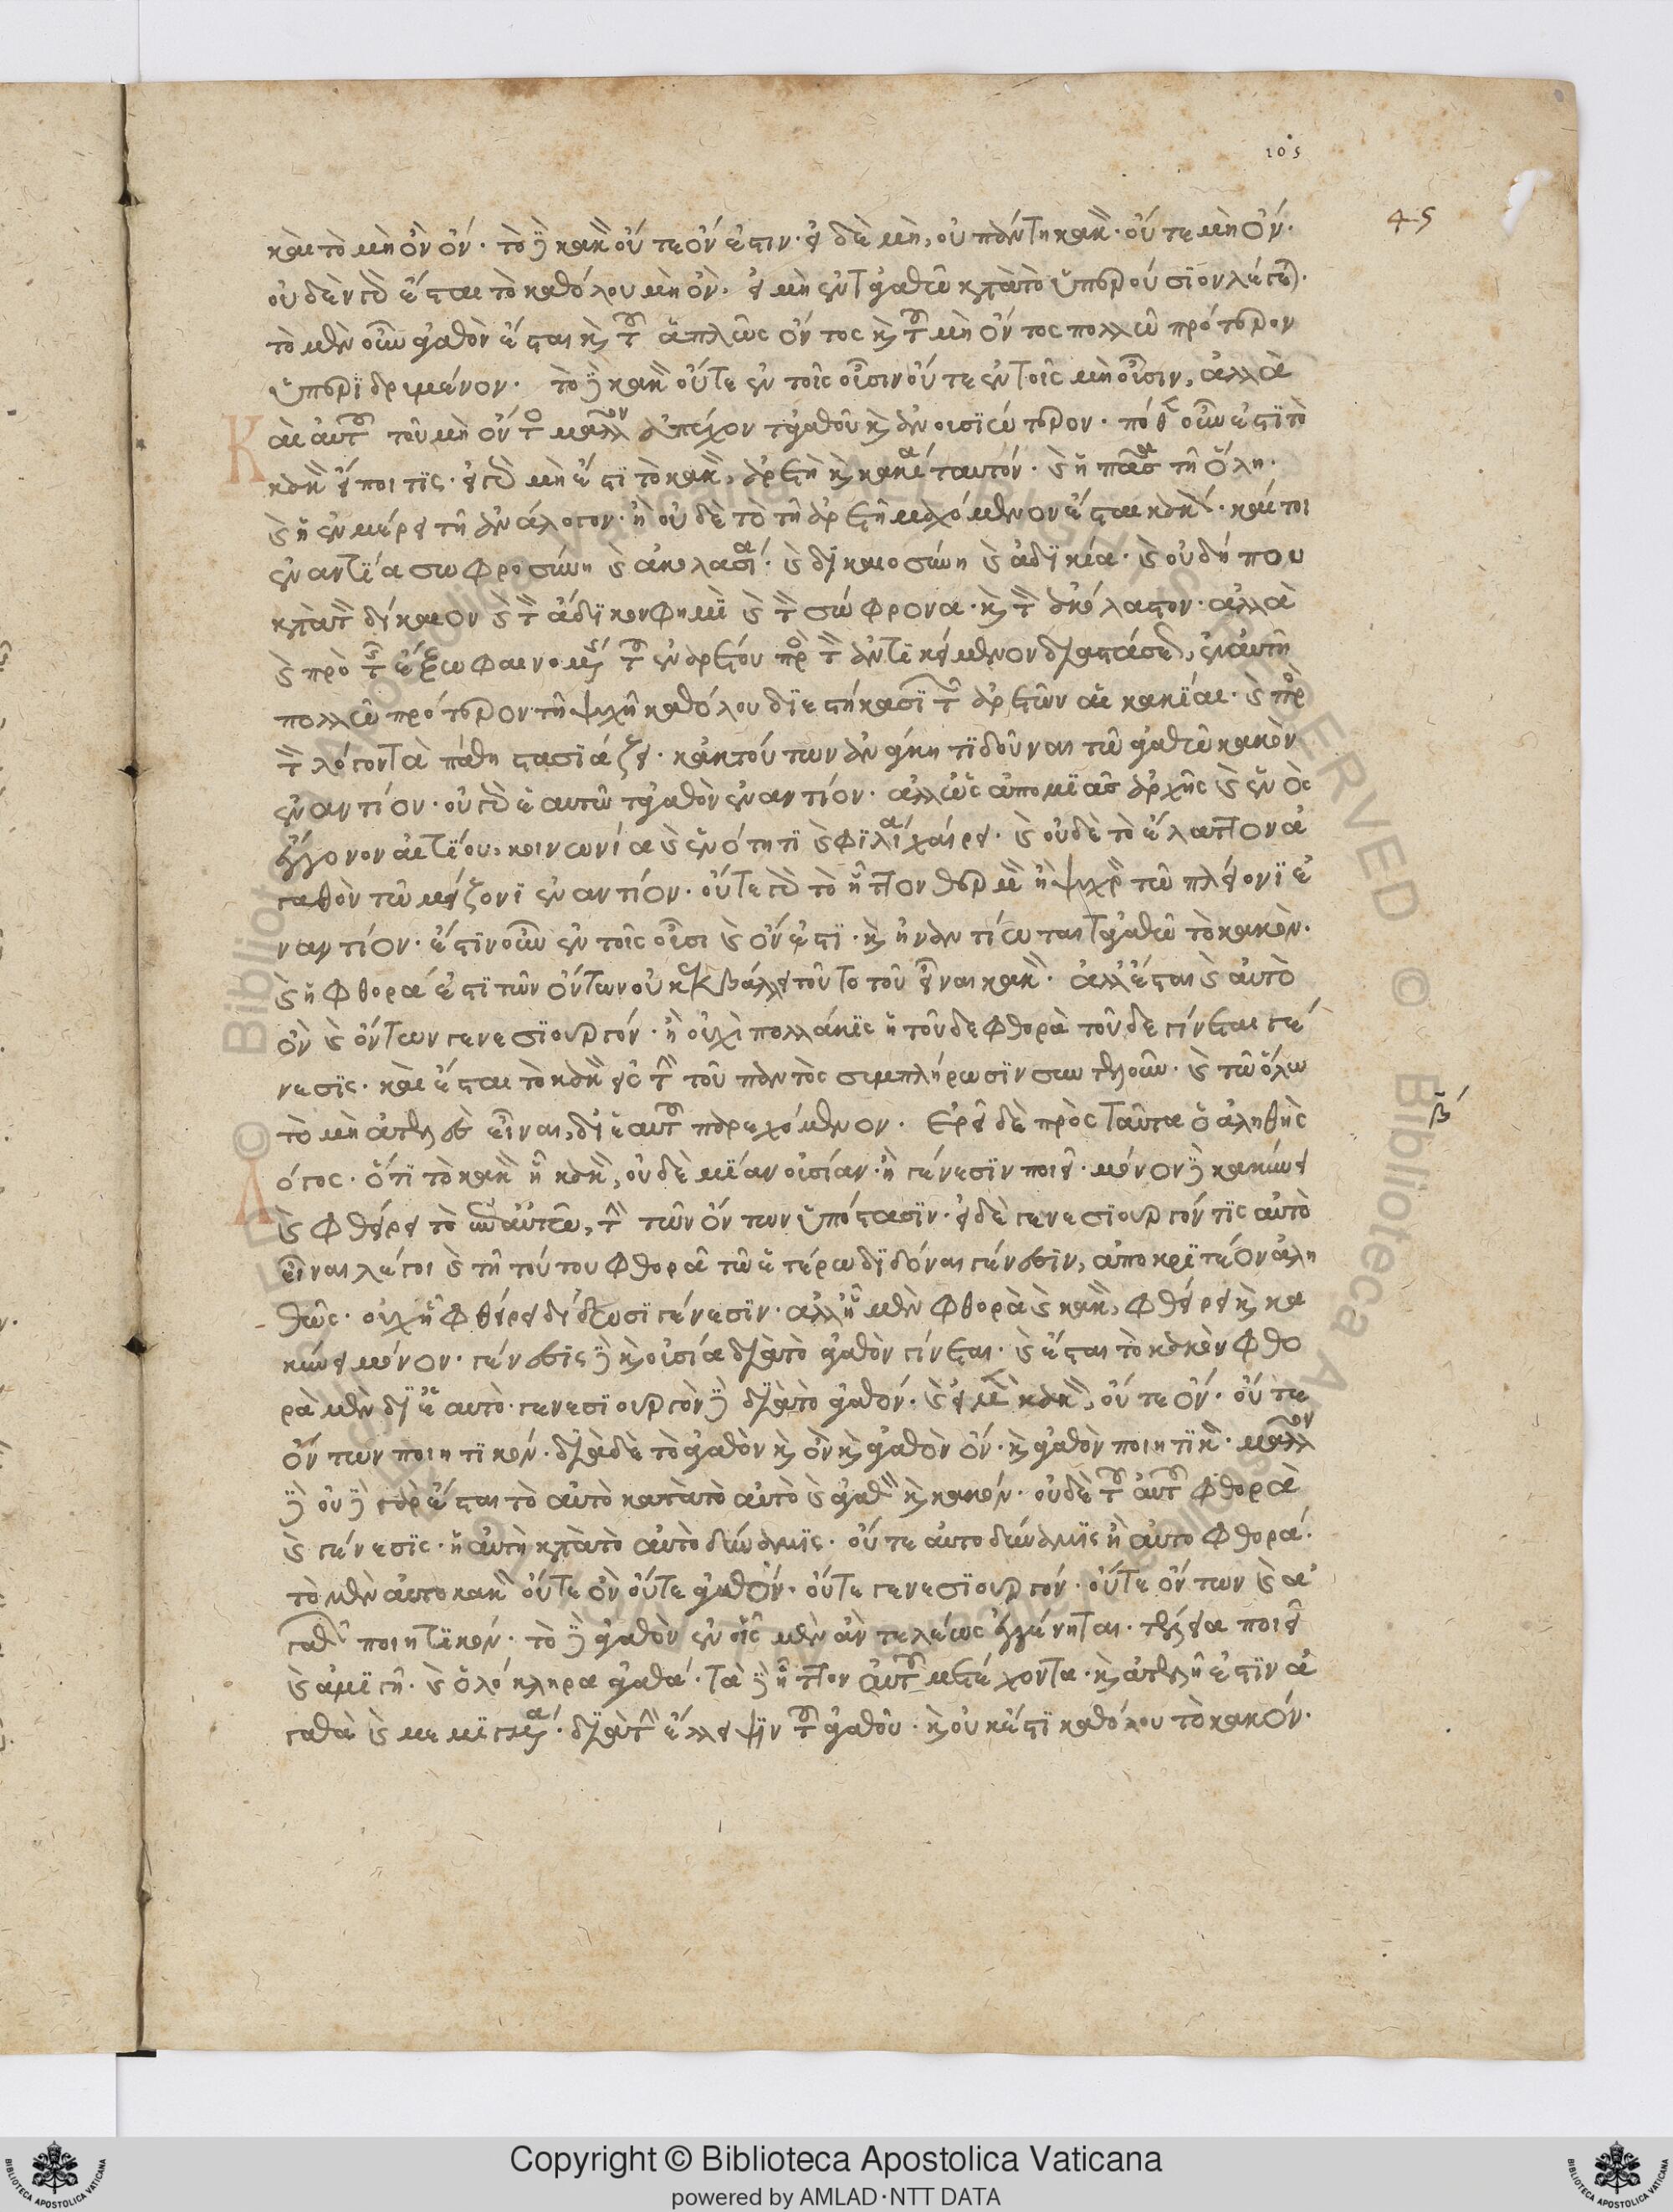 105
45
καὶ τὸ μὴ ὂν ὄν· τὸ δὲ κακὸν οὔτε ὄν ἐστιν· εἰ δὲ μὴ, οὐ πάντη κακόν· οὔτε μὴ ὄν·
οὐδὲν γὰρ ἔσται τὸ καθόλου μὴ ὂν· εἰ μὴ ἐν τἀγαθῶ κατὰ τὸ ὑπερούσιον λέγεται·
τὸ μὲν οὖν ἀγαθὸν ἔσται καὶ τοῦ ἁπλῶς ὄντος καὶ τοῦ μὴ ὄντος πολλῶ πρότερον
ὑπεριδρυμένον· τὸ δὲ κακὸν οὔτε ἐν τοῖς οὖσιν οὔτε ἐν τοῖς μὴ οὖσιν, ἀλλὰ
Καὶ αὐτοῦ τοῦ μὴ ὄντος μᾶλλον ἀπέχον τἀγαθοῦ καὶ ἀνουσιώτερον· πόθεν οὖν ἐστὶ τὸ
κακὸν εἴποι τίς· εἰ γὰρ μὴ ἔστι τὸ κακὸν, ἀρετὴ καὶ κακία ταυτόν· καὶ ἡ πᾶσα τῆ ὅλη·
καὶ ἡ ἐν μέρει τῆ ἀνάλογον· ἢ οὐδὲ τὸ τῆ ἀρετῆ μαχόμενον ἔσται κακόν· καίτοι
ἐναντία σωφροσύνη καὶ ἀκολασία· καὶ δικαιοσύνη καὶ ἀδικία· καὶ οὐ δήπου
κατὰ τὸν δίκαιον καὶ τὸν ἄδικον φημὶ καὶ τὸν σώφρονα· καὶ τὸν ἀκόλαστον· ἀλλὰ
καὶ πρὸ τῆς ἔξω φαινομένης τοῦ ἐναρέτου πρὸς τὸν ἀντικείμενον διαστάσεως, ἐν αὐτῆ
πολλῶ πρότερον τῆ ψυχῆ καθόλου διεστήκασι τῶν ἀρετῶν αἱ κακίαι· καὶ πρὸς
τὸν λόγον τὰ πάθη στασιάζει· κἀκ τούτων ἀνάγκη τι δοῦναι τῶ ἀγαθῶ κακὸν
ἐναντίον· οὐ γὰρ ἑαυτῶ τἀγαθὸν ἐναντίον· ἀλλ' ὡς ἀπὸ μιᾶς ἀρχῆς καὶ ἑνὸς
ἔκγονον αἰτίου, κοινωνία καὶ ἑνότητι καὶ φιλία χαίρει· καὶ οὐδὲ τὸ ἔλαττον ἀ
γαθὸν τῶ μείζονι ἐναντίον· οὔτε γὰρ τὸ ἧττον θερμὸν ἢ ψυχρὸν τῶ πλείονι ἐ
ναντίον· ἔστιν οὖν ἐν τοῖς οὖσι καὶ ὄν ἐστι· καὶ ἠναντίωται τἀγαθῶ τὸ κακὸν·
καὶ ἡ φθορά ἐστι τῶν ὄντων οὐκ ἐκβάλλει τοῦτο τοῦ εἶναι κακὸν· ἀλλ' ἔσται καὶ αὐτὸ
ὂν καὶ ὄντων γενεσιουργόν· ἢ οὐχὶ πολλάκις ἡ τοῦδε φθορὰ τοῦδε γίνεται γέ
νεσις· καὶ ἔσται τὸ κακὸν εἰς τὴν τοῦ παντὸς συμπλήρωσιν συντελοῦν· καὶ τῶ ὅλω
τὸ μὴ ἀτελὲς εἶναι, δι' ἑαυτὸ παρεχόμενον· Ἐρεῖ δὲ πρὸς ταῦτα ὁ ἀληθὴς
β
Λόγος· ὅτι τὸ κακὸν ἧ κακὸν, οὐδὲ μίαν οὐσίαν· ἢ γένεσιν ποιεῖ· μόνον δὲ κακύνει
καὶ φθείρει τὸ ἐφ' αὑτῶ, τὴν τῶν ὄντων ὑπόστασιν· εἰ δὲ γενεσιουργόν τις αὐτὸ
εἶναι λέγοι καὶ τῆ τούτου φθορᾶ τῶ ἑτέρω διδόναι γένεσιν, ἀποκριτέον ἀλη
θῶς· οὐχ ἧ φθείρει δίδωσι γένεσιν· ἀλλ' ἧ μὲν φθορὰ καὶ κακὸν, φθείρει καὶ κα
κύνει μόνον· γένεσις δὲ καὶ οὐσία διὰ τὸ ἀγαθὸν γίνεται· καὶ ἔσται τὸ κακὸν φθο
ρὰ μὲν δι' ἑαυτό· γενεσιουργὸν δὲ διὰ τὸ ἀγαθόν· καὶ εἰ μὲν κακὸν, οὔτε ὄν· οὔτε
ὄντων ποιητικόν· διὰ δὲ τὸ ἀγαθὸν καὶ ὂν καὶ ἀγαθὸν ὄν· καὶ ἀγαθῶν ποιητικὸν· μᾶλλον
δὲ οὐδὲ γὰρ ἔσται τὸ αὐτὸ κατὰ τὸ αὐτὸ καὶ ἀγαθὸν καὶ κακόν· οὐδὲ τοῦ αὐτοῦ φθορὰ
καὶ γένεσις· ἡ αὐτὴ κατὰ τὸ αὐτὸ δύναμις· οὔτε αὐτοδύναμις ἢ αὐτοφθορά·
τὸ μὲν αὐτοκακὸν οὔτε ὂν οὔτε ἀγαθόν· οὔτε γενεσιουργόν· οὔτε ὄντων καὶ ἀ
γαθῶν ποιητικόν· τὸ δὲ ἀγαθὸν ἐν οἷς μὲν ἂν τελέως ἐγγένηται· τέλεια ποιεῖ
καὶ ἀμιγῆ· καὶ ὁλόκληρα ἀγαθά· τὰ δὲ ἧττον αὐτοῦ μετέχοντα· καὶ ἀτελῆ ἐστὶν ἀ
γαθὰ καὶ μεμιγμένα· διὰ τὴν ἔλλειψιν τοῦ ἀγαθοῦ· καὶ οὐκ ἔστι καθόλου τὸ κακόν·
© Biblioteca Apostolica Vaticana
Copyright © Biblioteca Apostolica Vaticana
powered by AMLAD·NTT DATA